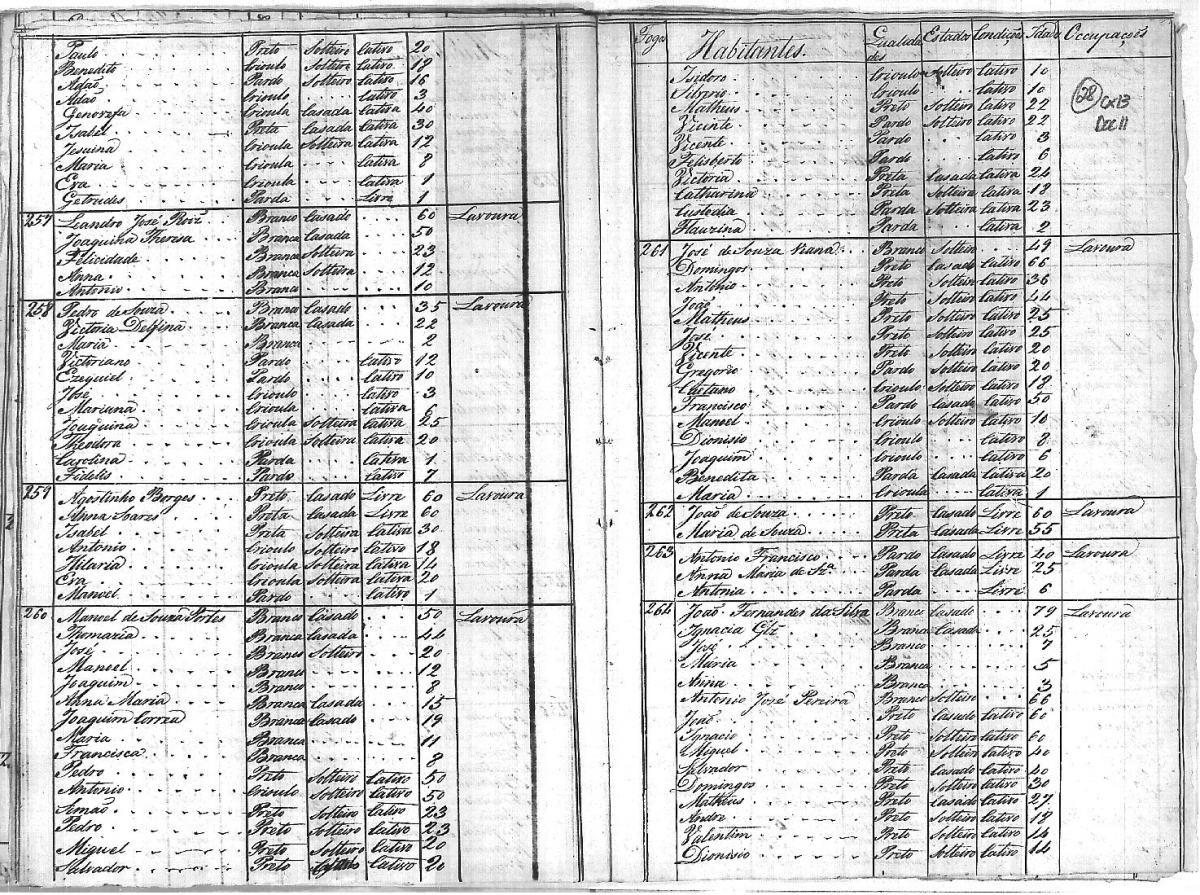 Paulo Preto Solteiro Cativo 20
Benedito Crioulo Solteiro Cativo 19
Adão Pardo Solteiro Cativo 16
Adão Crioulo Cativo 3
Genovefa Crioula Casada Cativa 40
Isabel Preta Casada Cativa 30
Jesuina Crioula Solteira Cativa 12
Maria Crioula Cativa 8
Eva Crioula Cativa 1
Getrudes Parda Livre 1
257 Leandro José Roiz Branco Casado 60 Lavoura
Joaquina Theresa Branca Casada 50
Felicidade Branca Solteira 23
Anna Branca Solteira 12
Antonio Branco 10
258 Pedro de Souza Branco Casado 35 Lavoura
Victoria Delfina Branca Casada 22
Maria Branca 2
Victoriano Pardo Cativo 12
Ezequiel Pardo Cativo 10
José Crioulo Cativo 3
Marianna Crioula Cativa 6
Joaquina Crioula Solteira Cativa 25
Theodora Crioula Solteira Cativa 20
Carolina Parda Cativa 1
Fidelis Pardo Cativo 7
259 Agostinho Borges Preto Casado Livre 60 Lavoura
Anna Soares Preta Casada Livre 60
Isabel Preta Solteira Cativa 30
Antonio Crioulo Solteiro Cativo 18
Hilaria Crioula Solteira Cativa 14
Eva Crioula Solteira Cativa 20
Manoel Pardo Cativo 1
260 Manoel de Souza Portes Branco Casado 50 Lavoura
Thomazia Branca Casada 44
José Branco Solteiro 20
Manoel Branco 12
Joaquim Branco 8
Anna Maria Branca Casada 15
Joaquim Correa Branco Casado 19
Maria Branca 11
Francisca Branca 8
Pedro Preto Solteiro Cativo 50
Antonio Crioulo Solteiro Cativo 50
Simão Preto Solteiro Cativo 23
Pedro Preto Solteiro Cativo 23
Miguel Preto Solteiro Cativo 20
Salvador Preto Cativo 20
Fogos Habitantes. Qualidades Estados Condições Idades Occupações
Isidoro Crioulo Solteiro Cativo 10
Silverio Crioulo Cativo 10
Matheus Preto Solteiro Cativo 22
Vicente Pardo Solteiro Cativo 22
Vicente Pardo Cativo 3
Felisberto Pardo Cativo 6
Victoria Preta Casada Cativa 24
Catharina Preta Solteira Cativa 18
Custodia Parda Solteira Cativa 23
Flauzina Parda Cativa 2
28 CX13
DOC11
261 José de Souza Viana Branco Solteiro 49 Lavoura
Domingos Preto Casado Cativo 66
Antonio Preto Solteiro Cativo 36
João Preto Solteiro Cativo 44
Matheus Preto Solteiro Cativo 25
José Preto Solteiro Cativo 25
Vicente Preto Solteiro Cativo 20
Gregorio Pardo Solteiro Cativo 20
Caetano Crioulo Solteiro Cativo 18
Francisco Pardo Casado Cativo 50
Manoel Crioulo Solteiro Cativo 10
Dionisio Crioulo Cativo 8
Joaquim Crioulo Cativo 6
Benedita Parda Casada Cativa 20
Maria Crioula Cativa 1
262 João de Souza Preto Casado Livre 60 Lavoura
Maria de Souza Preta Casada Livre 55
263 Antonio Francisco Pardo Casado Livre 40 Lavoura
Anna Maria de Sza. Parda Casada Livre 25
Antonia Parda Livre 6
264 João Fernandes da Silva Branco Casado 79 Lavoura
Ignacia Glz Branca Casada 25
José Branco 7
Maria Branca 5
Anna Branca 3
Antonio José Pereira Branco Solteiro 66
João Preto Casado Cativo 60
Ignacio Preto Solteiro Cativo 60
Miguel Preto Solteiro Cativo 40
Salvador Preto Casado Cativo 40
Domingos Preto Solteiro Cativo 30
Matheus Preto Casado Cativo 27
Andre Preto Solteiro Cativo 18
Valentim Preto Solteiro Cativo 14
Dionisio Preto Solteiro Cativo 14